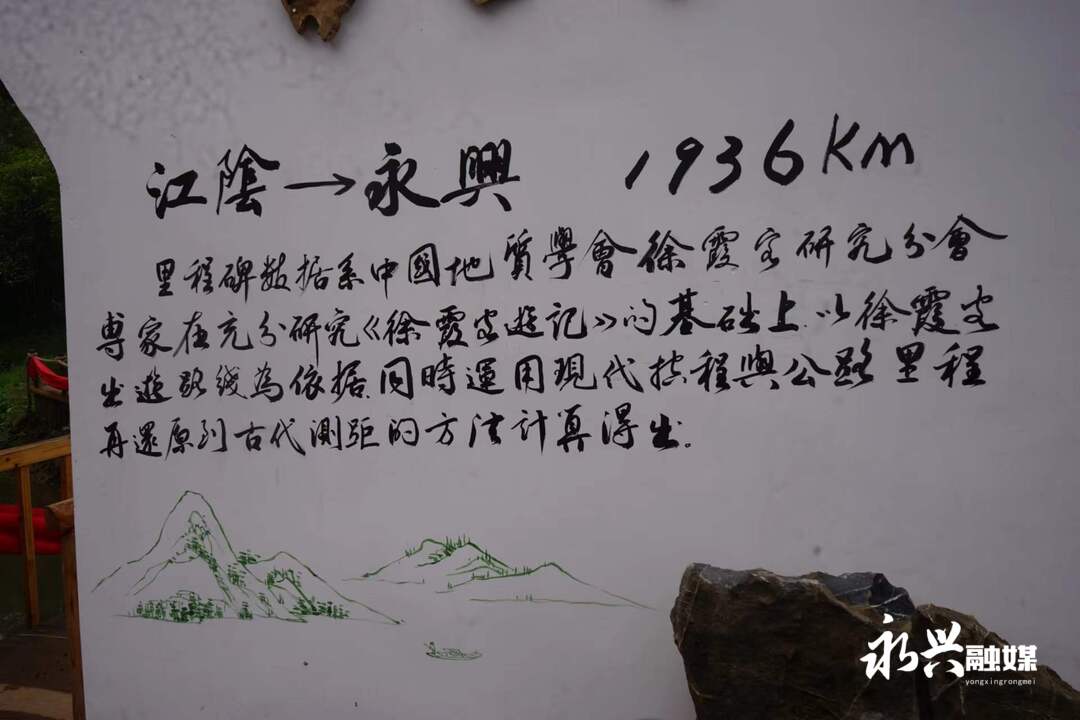 江陰→永興 1936KM
里程碑数据系中國地質學會徐霞客研究分會
專家在充分研究《徐霞客遊記》的基础上.以徐霞客
出遊路线為依据.同時運用現代控程與公路里程
再還原到古代測距的方法計算得出。
永兴融媒
yongxingrongmei